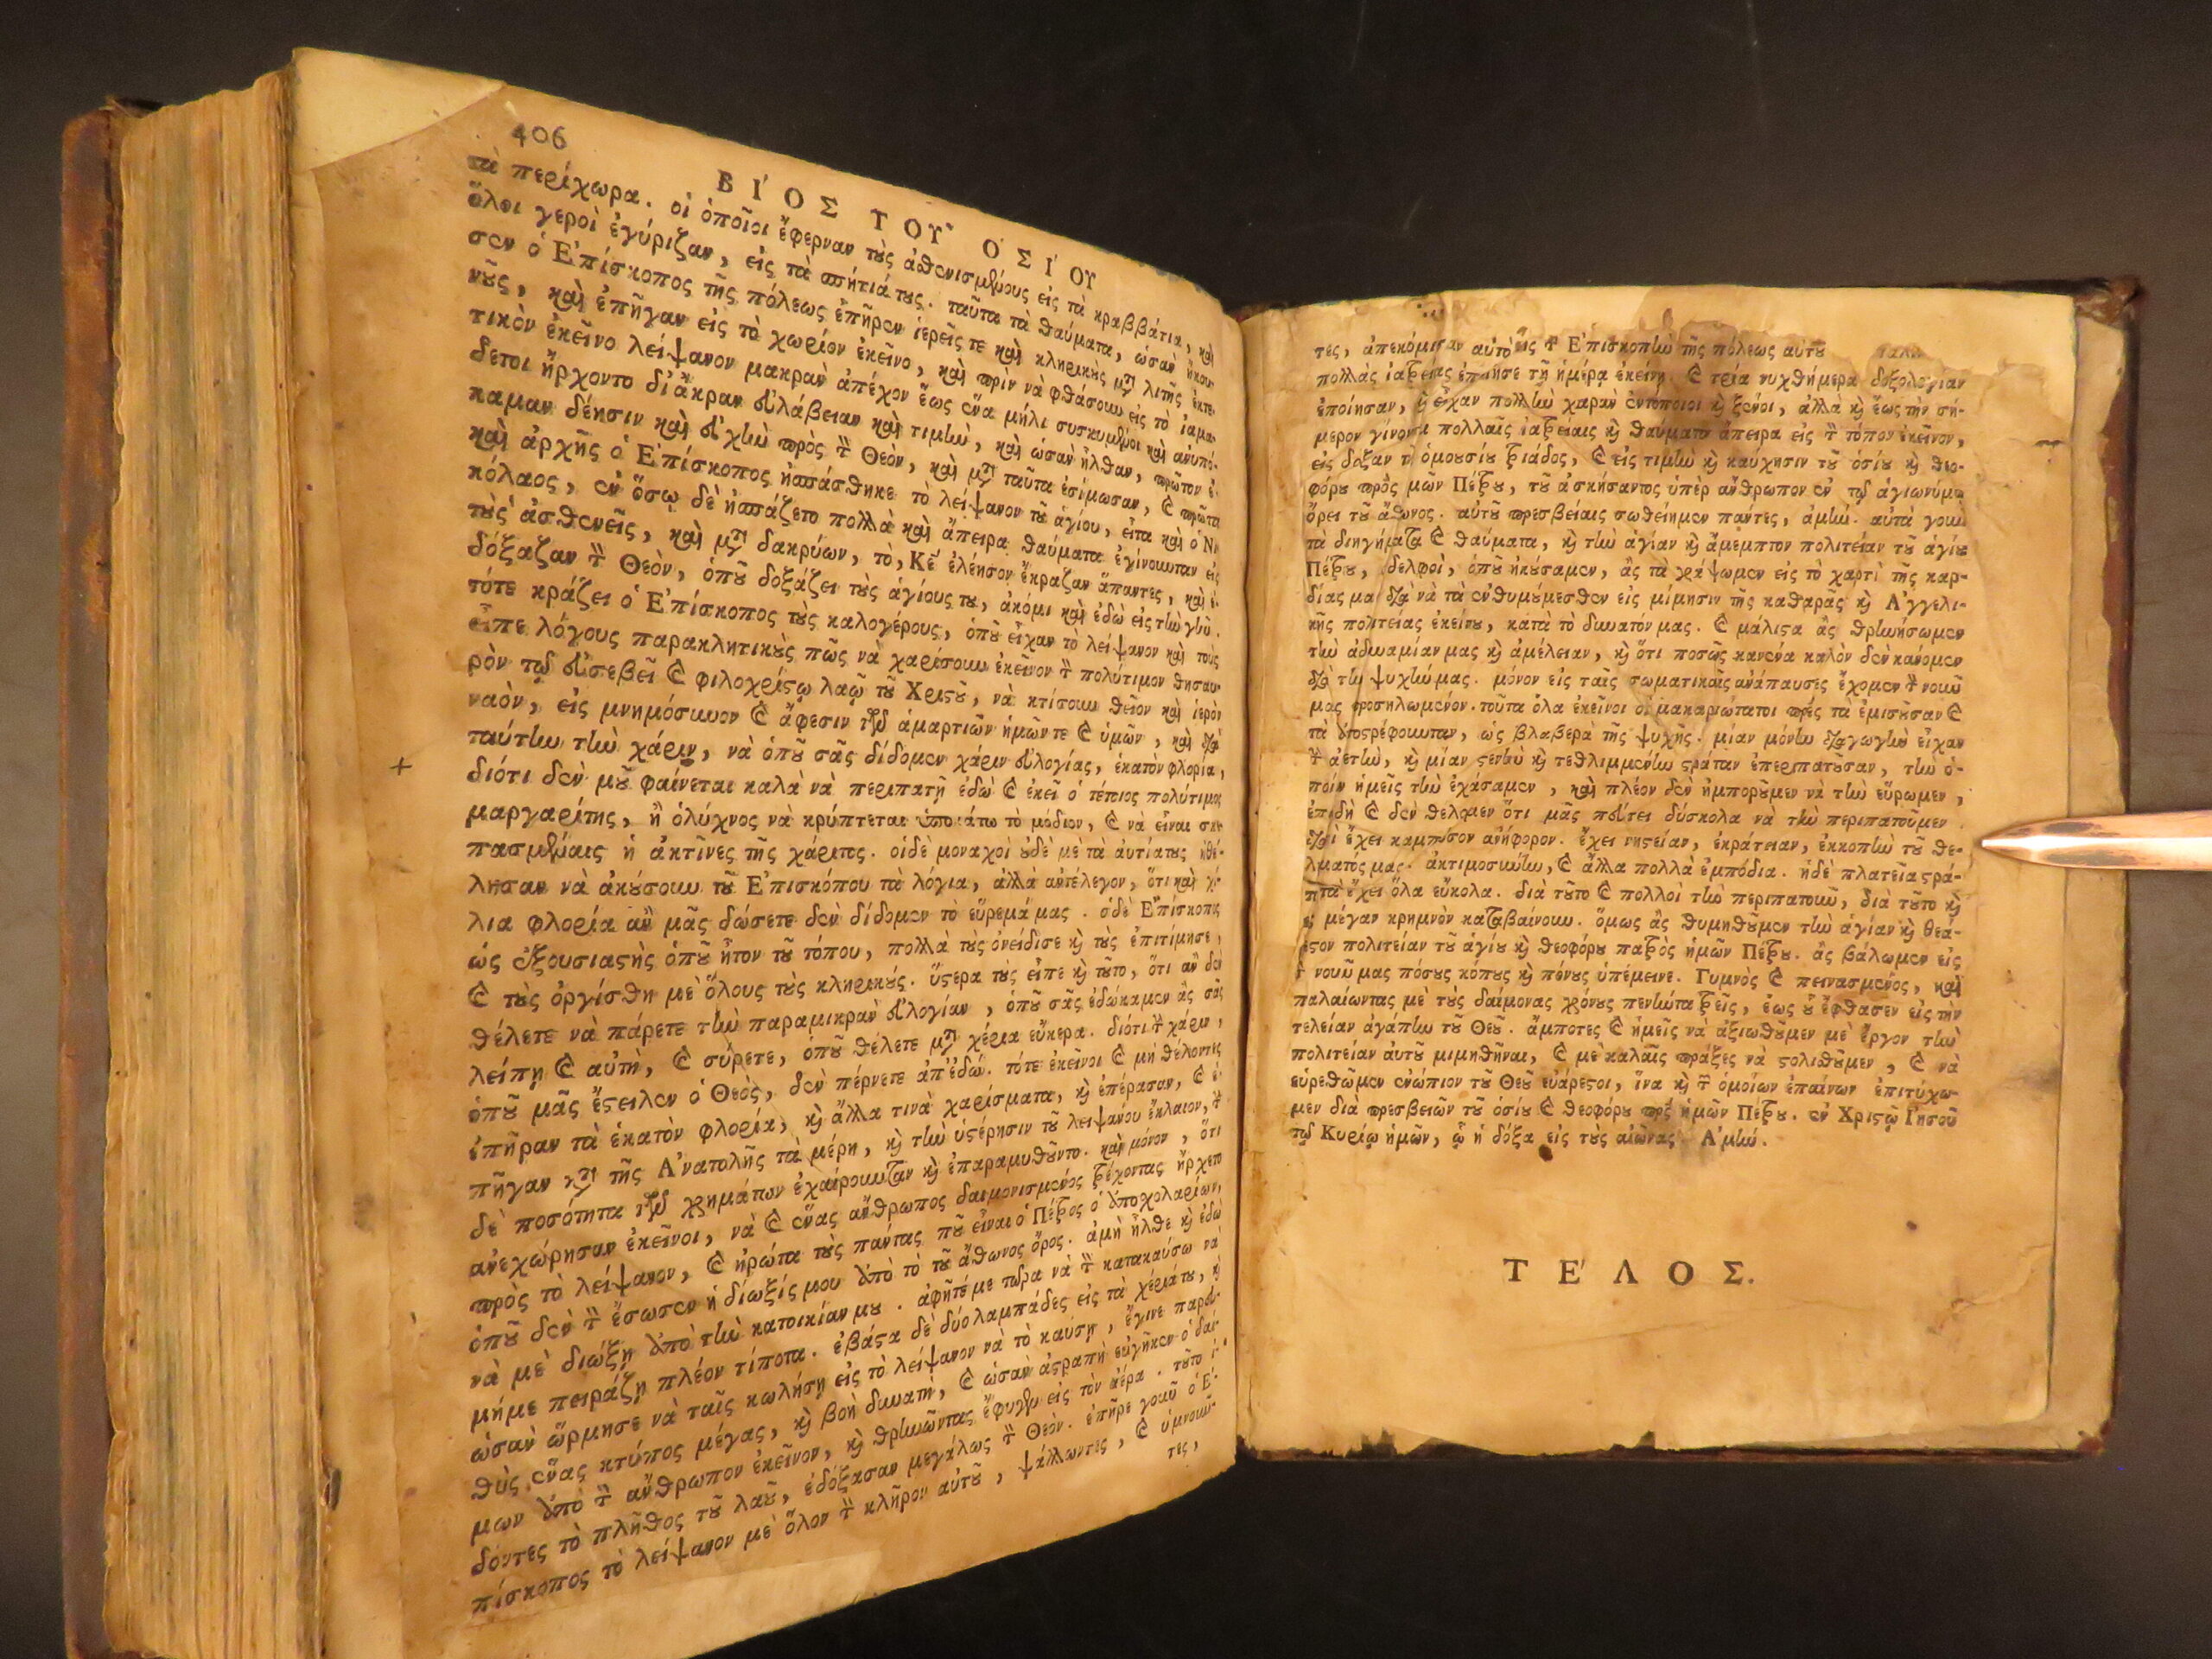 406
ΒΊΟΣ ΤΟΥ͂ ὉΣΊΟΥ
τὰ περίχωρα. οἱ ὁποῖοι ἔφερναν τȣ̀ς ἀθενισμένους εἰς τὰ κραββάτια, καὶ
ὅλοι γεροὶ ἐγύριζαν, εἰς τὰ σπήτιά τȣς. ταῦτα τὰ θαύματα, ὡσὰν ἤκου-
σεν ὁ Ἐπίσκοπος τῆς πόλεως ἐπῆρεν ἱερεῖς τε καὶ κληρικȣ̀ς μετὰ λιτῆς ἐκτε-
νȣ͂ς, καὶ ἐπῆγαν εἰς τὸ χωρίον ἐκεῖνο, καὶ πρὶν νὰ φθάσουν εἰς τὸ ἰαμα-
τικὸν ἐκεῖνο λείψανον μακρὰν ἀπέχον ἕως ἕνα μήλι συσκυμμένοι καὶ ἀνυπό-
δετοι ἤρχοντο δι' ἄκραν εὐλάβειαν καὶ τιμὴν, καὶ ὡσὰν ἦλθαν, πρῶτον ἔ-
καμαν δέησιν καὶ εὐχὴν πρὸς τὸν Θεὸν, καὶ μετὰ ταῦτα ἐσίμωσαν, καὶ πρῶτα
καὶ ἀρχῆς ὁ Ἐπίσκοπος ἠσπάσθηκε τὸ λείψανον τοῦ ἁγίου, εἶτα καὶ ὁ Νι-
κόλαος, ἐν ὅσῳ δὲ ἠσπάζετο πολλὰ καὶ ἄπειρα θαύματα ἐγίνουνταν εἰς
τοὺς ἀσθενεῖς, καὶ μετὰ δακρύων, τὸ, Κέ ἐλέησον ἔκραζαν ἅπαντες, καὶ ἐ-
δόξαζαν τὸν Θεὸν, ὁπȣ͂ δοξάζει τȣ̀ς ἁγίους τȣ, ἀκόμι καὶ ἐδὼ εἰς τὴν γῆν.
τότε κράζει ὁ Ἐπίσκοπος τȣ̀ς καλογέρους, ὁπȣ͂ εἶχαν τὸ λείψανον καὶ τοὺς
εἶπε λόγους παρακλητικȣ̀ς πῶς νὰ χαρίσουν ἐκεῖνον τὸν πολύτιμον θησαυ-
ρὸν τῷ εὐσεβεῖ καὶ φιλοχρίστῳ λαῷ τȣ͂ Χριστȣ͂, νὰ κτίσουν θεῖον καὶ ἱερὸν
ναὸν, εἰς μνημόσυνον καὶ ἄφεσιν τῶν ἁμαρτιῶν ἡμῶν τε καὶ ὑμῶν, καὶ διὰ
ταύτην τὴν χάριν, νὰ ὁπȣ͂ σᾶς δίδομεν χάριν εὐλογίας, ἑκατὸν φλορία,
διότι δὲν μȣ͂ φαίνεται καλὰ νὰ περιπατῇ ἐδὼ καὶ ἐκεῖ ὁ τέτοιος πολύτιμος
μαργαρίτης, ἢ ὁ λύχνος νὰ κρύπτεται ὑποκάτω τὸ μόδιον, καὶ νὰ εἶναι σκε-
πασμέναις ἡ ἀκτίνες τῆς χάριτος. οἱ δὲ μοναχοὶ ȣ̓δὲ μὲ τὰ ἀυτία τȣς ἠθέ-
λησαν νὰ ἀκȣ́σουν τȣ͂ Ἐπισκόπου τὰ λόγια, ἀλλὰ ἀντέλεγον, ὅτι καὶ χί-
λια φλορία ἂν μᾶς δώσετε δὲν δίδομεν τὸ εὕρεμά μας. ὁ δὲ Ἐπίσκοπος
ὡς ἐξουσιαστὴς ὁπȣ͂ ἦτον τȣ͂ τόπου, πολλὰ τȣ̀ς ὀνείδισε καὶ τȣ̀ς ἐπιτίμησε,
καὶ τȣ̀ς ὀργίσθη μὲ ὅλους τȣ̀ς κληρικȣ́ς. ὕστερα τȣ̀ς εἶπε καὶ τȣ͂το, ὅτι ἂν δὲν
θέλετε νὰ πάρετε τὴν παραμικρὰν εὐλογίαν, ὁπȣ͂ σᾶς ἐδώκαμεν ἂς σᾶς
λείπῃ καὶ αὐτὴ, καὶ σύρετε, ὁπȣ͂ θέλετε μετὰ χέρια εὔκερα. διότι τὸν χάριν,
ὁπȣ͂ μᾶς ἔστειλεν ὁ Θεὸς, δὲν πέρνετε ἀπ' ἐδώ. τότε ἐκεῖνοι καὶ μὴ θέλοντες
ἐπῆραν τὰ ἑκατὸν φλορία, καὶ ἄλλα τινὰ χαρίσματα, καὶ ἐπέρασαν, καὶ ἐ-
πῆγαν κατὰ τῆς Ἀνατολῆς τὰ μέρη, καὶ τὴν ὑστέρησιν τȣ͂ λειψάνου ἔκλαιον, τὸν
δὲ ποσότητα τῶν χρημάτων ἐχαίρουνταν καὶ ἐπαραμυθȣ͂ντο. καὶ μόνον, ὅτι
ἀνεχώρησαν ἐκεῖνοι, νὰ καὶ ἕνας ἄνθρωπος δαιμονισμένος τρέχοντας ἤρχετο
πρὸς τὸ λείψανον, καὶ ἠρώτα τȣ̀ς πάντας πȣ͂ εἶναι ὁ Πέτρος ὁ ἀποχολαρίων,
ὁπȣ͂ δὲν τὸν ἔσωσεν ἡ δίωξίς μου ἀπὸ τὸ τȣ͂ ἄθωνος ὄρος. ἀμὴ ἦλθε καὶ ἐδὼ
νὰ μὲ διώξῃ ἀπὸ τὴν κατοικίαν μȣ. ἀφῆτέ με τῶρα νὰ τὸν κατακαύσω νὰ
μή με πειράζῃ πλέον τίποτα. ἐβάστα δὲ δύο λαμπάδες εἰς τὰ χέρια τȣ, καὶ
ὡσὰν ὥρμησε νὰ ταῖς κωλήσῃ εἰς τὸ λείψανον νὰ τὸ καύσῃ, ἔγινε παρευ-
θὺς ἕνας κτύπος μέγας, καὶ βοὴ δυνατὴ, καὶ ὡσὰν ἀστραπὴ εὐγῆκεν ὁ δαί-
μων ἀπὸ τὸν ἄνθρωπον ἐκεῖνον, καὶ θρηνῶντας ἔφυγεν εἰς τὸν ἀέρα. τȣ͂το ἰ-
δόντες τὸ πλῆθος τȣ͂ λαȣ͂, ἐδόξασαν μεγάλως τὸν Θεὸν. ἐπῆρε γοῦν ὁ Ἐ-
πίσκοπος τὸ λείψανον μὲ ὅλον τὸν κλῆρον αὐτȣ͂, ψάλλωντες, καὶ ὑμνουν-
τες,
τες, ἀπεκόμισαν αὐτὸ εἰς τὸν Ἐπισκοπὴν τῆς πόλεως αὐτȣ
πολλὰς ἰατρείας ἐποίησε τῇ ἡμέρᾳ ἐκείνῃ. καὶ τρία νυχθήμερα δοξολογίαν
ἐποίησαν, καὶ εἶχαν πολλὴν χαρὰν ἐντόποιοι καὶ ξένοι, ἀλλὰ καὶ ἕως τὴν σή-
μερον γίνονται πολλαῖς ἰατρείαις καὶ θαύματα ἄπειρα εἰς τὸν τόπον ἐκεῖνον,
εἰς δόξαν τ ὁμοουσίȣ τριάδος, καὶ εἰς τιμὴν καὶ καύχησιν τȣ͂ ὁσίȣ καὶ θεο-
φόρȣ πρὸς μῶν Πέτρȣ, τȣ͂ ἀσκήσαντος ὑπὲρ ἄνθρωπον ἐν τῷ ἁγιωνύμῳ
ὄρει τȣ͂ ἄθωνος. αὐτȣ͂ πρεσβείαις σωθείημεν πάντες, ἀμήν. αὐτὰ γοῦν
τὰ διηγήματα καὶ θαύματα, καὶ τὴν ἁγίαν καὶ ἄμεμπτον πολιτείαν τȣ͂ ἁγίȣ
Πέτρȣ, δελφοὶ, ὁπȣ͂ ἠκȣ́σαμεν, ἂς τὰ γράψωμεν εἰς τὸ χαρτὶ τῆς καρ-
δίας μα διὰ νὰ τὰ ἐνθυμȣ́μεσθεν εἰς μίμησιν τῆς καθαρᾶς καὶ Ἀγγελι-
κῆς πολιτείας ἐκείνȣ, κατὰ τὸ δυνατόν μας. καὶ μάλιστα ἂς θρηνήσωμεν
τὴν ἀδυναμίαν μας καὶ ἀμέλειαν, καὶ ὅτι ποσῶς κανένα καλὸν δὲν κάνομεν
διὰ τὴν ψυχήν μας. μόνον εἰς ταῖς σωματικαῖς ἀνάπαυσες ἔχομεν τὸν νοῦν
μας προσηλωμένον. τοῦτα ὅλα ἐκεῖνοι οἱ μακαριώτατοι πρες τὰ ἐμισȣ͂σαν καὶ
τὰ ἀποστρέφουνταν, ὡς βλαβερὰ τῆς ψυχῆς. μίαν μόνην διαγωγὴν εἶχαν
τὸν ἀρετὴν, καὶ μίαν στενὴν καὶ τεθλιμμένην στράταν ἐπεριπατȣ͂σαν, τὴν ὁ-
ποίαν ἡμεῖς τὴν ἐχάσαμεν, καὶ πλέον δὲν ἠμπορȣ͂μεν νὰ τὴν εὕρωμεν,
ἐπιδὴ καὶ δὲν θέλομεν ὅτι μᾶς πέφτει δύσκολα νὰ τὴν περιπατοῦμεν
διατὶ ἔχει καμπόσον ἀνήφορον. ἔχει νηστείαν, ἐκράτειαν, ἐκκοπὴν τȣ͂ θε-
λματός μας. ἀκτιμοσύνην, καὶ ἄλλα πολλὰ ἐμπόδια. ἡ δὲ πλατεῖα στρά-
πτα ἔχει ὅλα εὔκολα. διὰ τȣ͂το καὶ πολλοὶ τὴν περιπατοῦν, διὰ τȣ͂το καὶ
εἰς μέγαν κρημνὸν καταβαίνουν. ὅμως ἂς θυμηθȣ͂μεν τὴν ἁγίαν καὶ θεά-
ρεστον πολιτείαν τȣ͂ ἁγίȣ καὶ θεοφόρȣ πατρὸς ἡμῶν Πέτρȣ. ἂς βάλωμεν εἰς
τ νοῦν μας πόσȣς κόπȣς καὶ πόνȣς ὑπέμεινε. Γυμνὸς καὶ πεινασμένος, καὶ
παλαίωντας μὲ τȣ̀ς δαίμονας χρόνȣς πενήντα τρεῖς, ἕως ȣ̔͂ ἔφθασεν εἰς τὴν
τελείαν ἀγάπην τȣ͂ Θεȣ͂. ἄμποτες καὶ ἡμεῖς νὰ ἀξιωθȣ͂μεν μὲ ἔργον τὴν
πολιτείαν ἀυτȣ͂ μιμηθῆναι, καὶ μὲ καλαῖς πράξες νὰ στολιθȣ͂μεν, καὶ νὰ
εὑρεθῶμεν ἐνώπιον τȣ͂ Θεȣ͂ εὐάρεστοι, ἵνα καὶ τῶν ὁμοίων ἐπαίνων ἐπιτύχω-
μεν διὰ πρεσβειῶν τȣ͂ ὁσίȣ καὶ θεοφόρȣ πρς ἡμῶν Πέτρȣ. ἐν Χριστῷ Ἰησοῦ
τῷ Κυρίῳ ἡμῶν, ᾧ ἡ δόξα εἰς τȣ̀ς αἰῶνας. Ἀμήν.
ΤΈΛΟΣ.